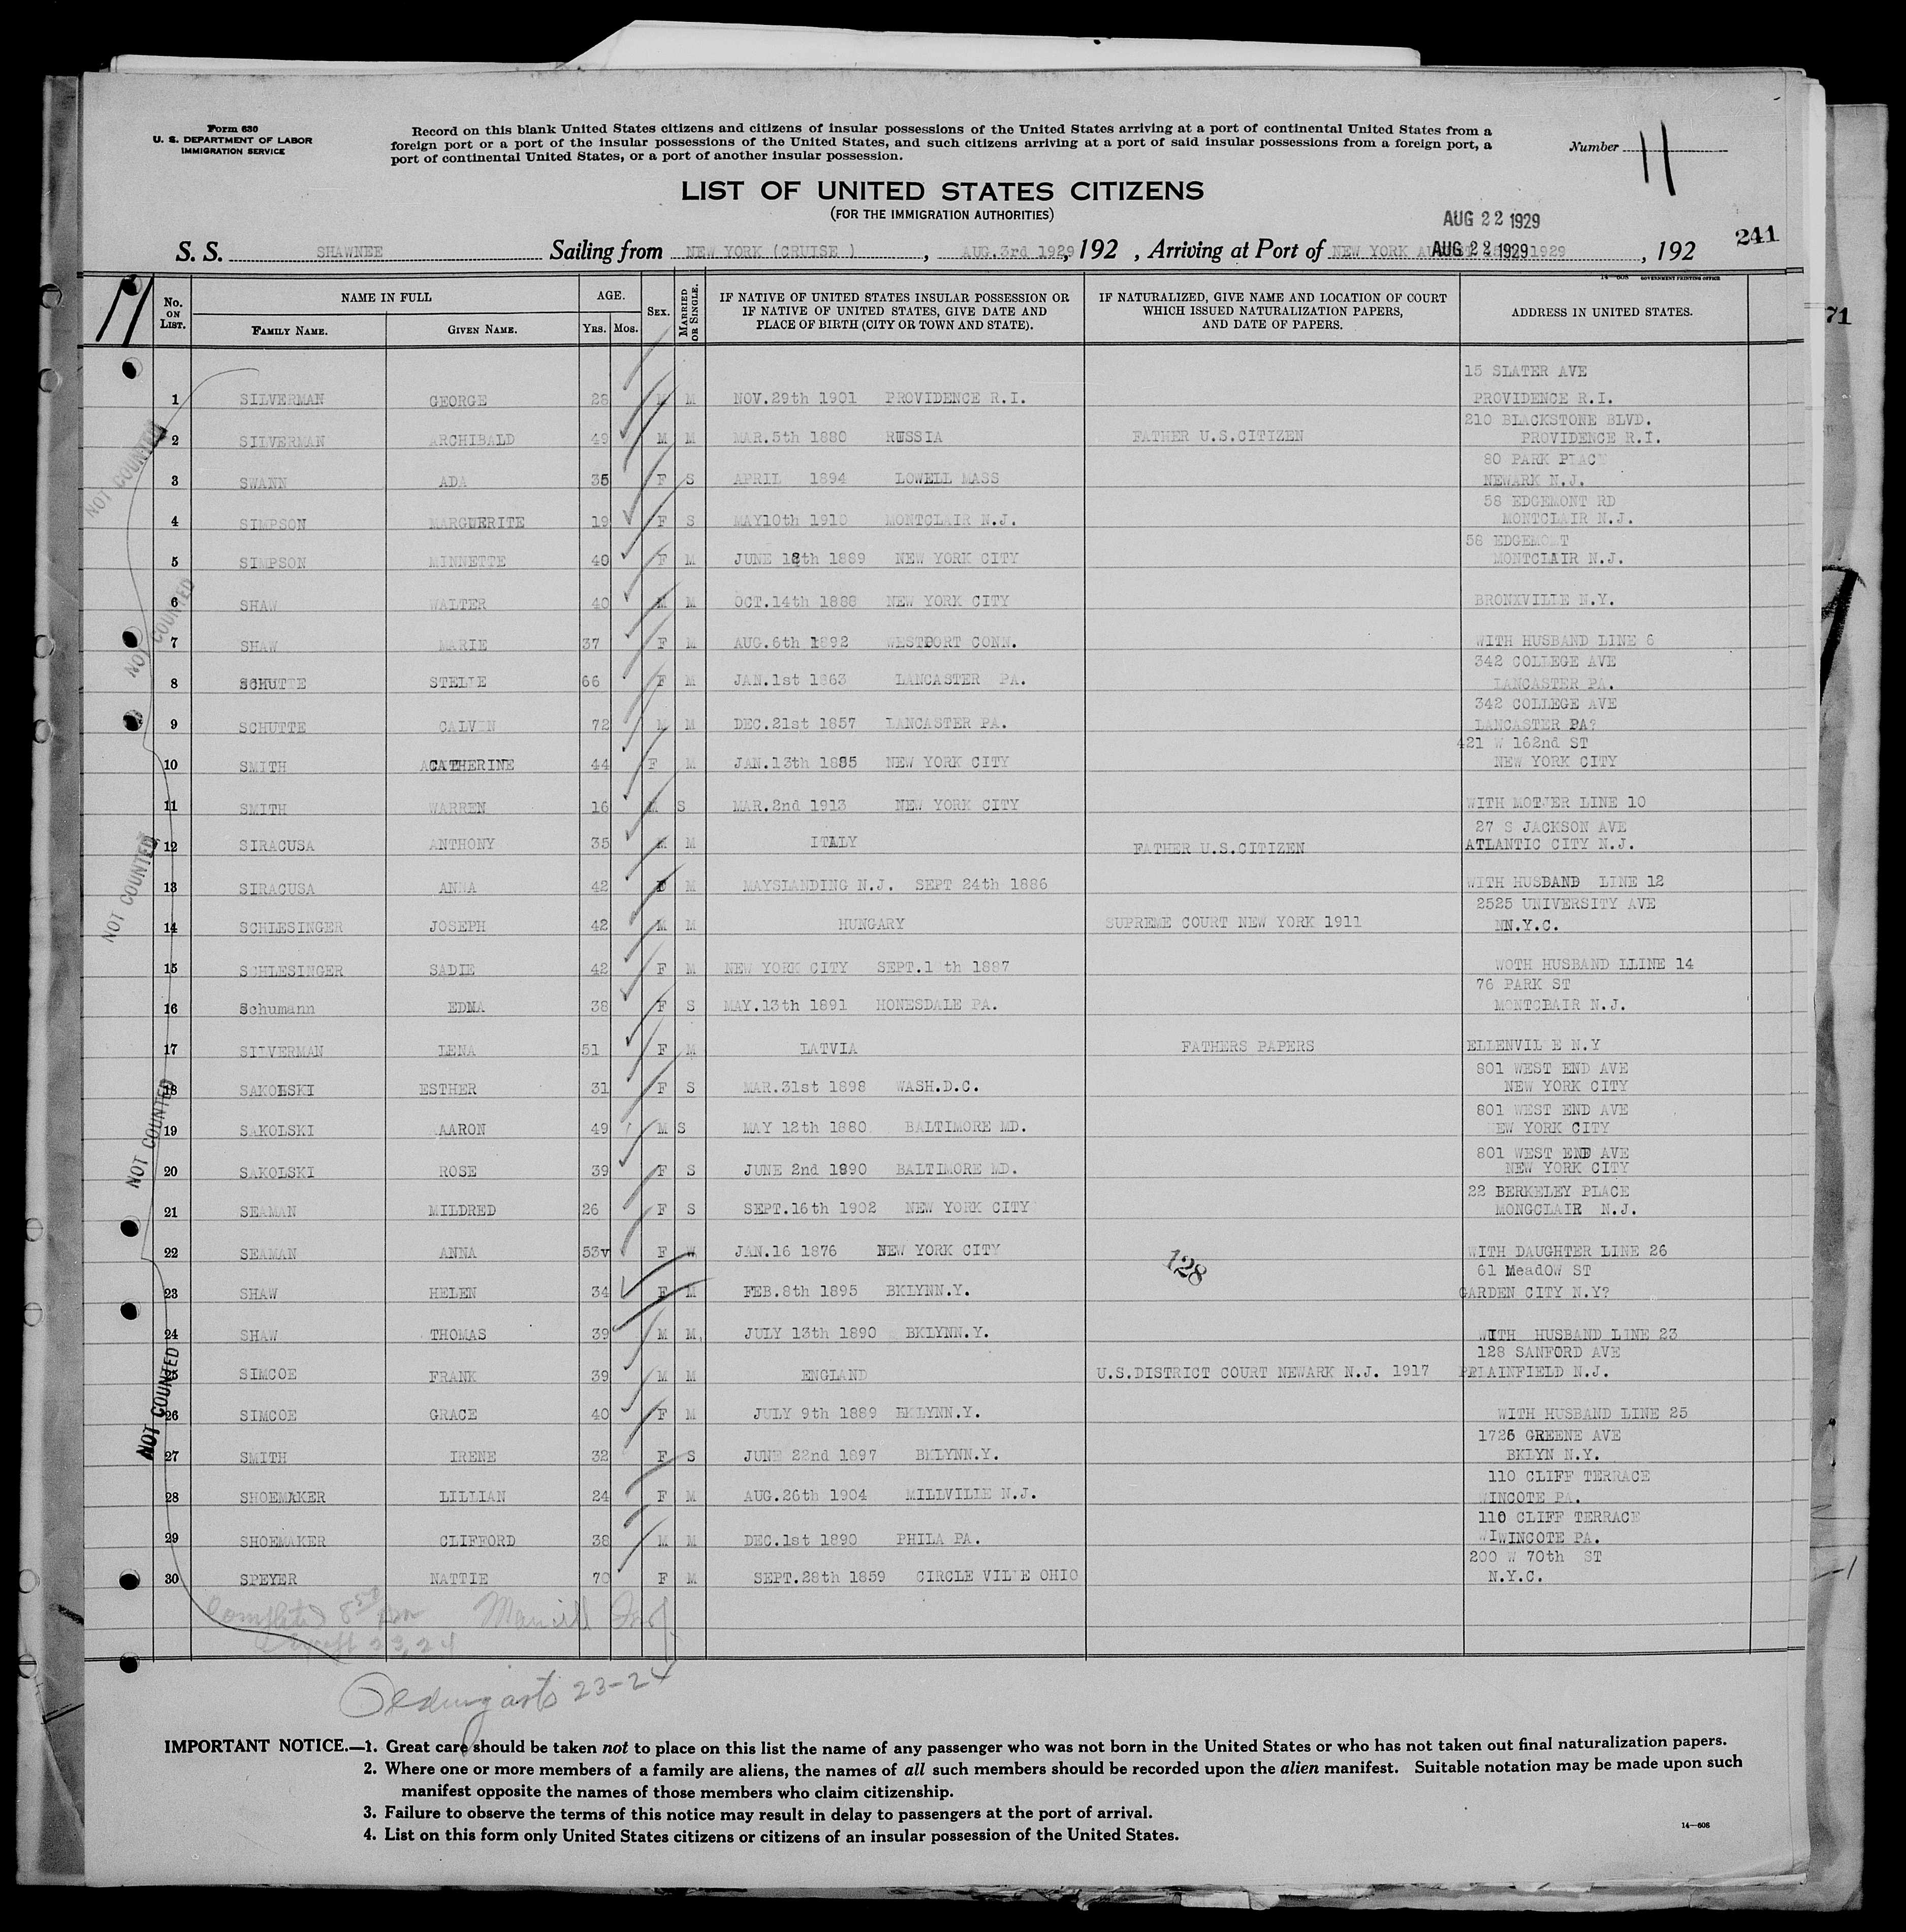 Form 630
U. S. DEPARTMENT OF LABOR
IMMIGRATION SERVICE
Record on this blank United States citizens and citizens of insular possessions of the United States arriving at a port of continental United States from a
foreign port or a port of the insular possessions of the United States, and such citizens arriving at a port of said insular possessions from a foreign port, a
port of continental United States, or a port of another insular possession.
Number 11
LIST OF UNITED STATES CITIZENS
(FOR THE IMMIGRATION AUTHORITIES)
AUG 22 1929
241
S. S. SHAWNEE Sailing from NEW YORK (CRUISE ) , AUG.3rd 1929, 192 , Arriving at Port of NEW YORK AUG 22 1929 1929 , 192
14—608 GOVERNMENT PRINTING OFFICE
11
71
No. ON LIST. NAME IN FULL FAMILY NAME. GIVEN NAME. AGE. Yrs. Mos. SEX. MARRIED OR SINGLE. IF NATIVE OF UNITED STATES INSULAR POSSESSION OR IF NATIVE OF UNITED STATES, GIVE DATE AND PLACE OF BIRTH (CITY OR TOWN AND STATE). IF NATURALIZED, GIVE NAME AND LOCATION OF COURT WHICH ISSUED NATURALIZATION PAPERS, AND DATE OF PAPERS. ADDRESS IN UNITED STATES.
15 SLATER AVE
1 SILVERMAN GEORGE 28 M M NOV.29th 1901 PROVIDENCE R.I. PROVIDENCE R.I.
210 BLACKSTONE BLVD.
2 SILVERMAN ARCHIBALD 49 M M MAR.5th 1880 RUSSIA FATHER U.S.CITIZEN PROVIDENCE R.I.
80 PARK PLACE
3 SWANN ADA 35 F S APRIL 1894 LOWELL MASS NEWARK N.J.
58 EDGEMONT RD
4 SIMPSON MARGUERITE 19 F S MAY10th 1910 MONTCLAIR N.J. MONTCLAIR N.J.
58 EDGEMONT
5 SIMPSON MINNETTE 40 F M JUNE 18th 1889 NEW YORK CITY MONTCLAIR N.J.
6 SHAW WALTER 40 M M OCT.14th 1888 NEW YORK CITY BRONXVILLE N.Y.
7 SHAW MARIE 37 F M AUG.6th 1892 WESTPORT CONN. WITH HUSBAND LINE 6
342 COLLEGE AVE
8 SCHUTTE STELLE 66 F M JAN.1st 1863 LANCASTER PA. LANCASTER PA.
342 COLLEGE AVE
9 SCHUTTE CALVIN 72 M M DEC.21st 1857 LANCASTER PA. LANCASTER PA?
421 W 162nd ST
10 SMITH CATHERINE 44 F M JAN.13th 1885 NEW YORK CITY NEW YORK CITY
11 SMITH WARREN 16 M S MAR.2nd 1913 NEW YORK CITY WITH MOTJER LINE 10
27 S JACKSON AVE
12 SIRACUSA ANTHONY 35 M M ITALY FATHER U.S.CITIZEN ATLANTIC CITY N.J.
13 SIRACUSA ANNA 42 F M MAYSLANDING N.J. SEPT 24th 1886 WITH HUSBAND LINE 12
2525 UNIVERSITY AVE
14 SCHLESINGER JOSEPH 42 M M HUNGARY SUPREME COURT NEW YORK 1911 NN.Y.C.
15 SCHLESINGER SADIE 42 F M NEW YORK CITY SEPT.1 th 1887 WOTH HUSBAND LLINE 14
76 PARK ST
16 Schumann EDNA 38 F S MAY.13th 1891 HONESDALE PA. MONTCBAIR N.J.
17 SILVERMAN LENA 51 F M LATVIA FATHERS PAPERS ELLENVILE N.Y
801 WEST END AVE
18 SAKOLSKI ESTHER 31 F S MAR.31st 1898 WASH.D.C. NEW YORK CITY
801 WEST END AVE
19 SAKOLSKI AARON 49 M S MAY 12th 1880 BALTIMORE MD. NEW YORK CITY
801 WEST END AVE
20 SAKOLSKI ROSE 39 F S JUNE 2nd 1890 BALTIMORE MD. NEW YORK CITY
22 BERKELEY PLACE
21 SEAMAN MILDRED 26 F S SEPT.16th 1902 NEW YORK CITY MONGCLAIR N.J.
22 SEAMAN ANNA 53v F W JAN.16 1876 NEW YORK CITY WITH DAUGHTER LINE 26
128
61 MeadOW ST
23 SHAW HELEN 34 F M FEB.8th 1895 BKLYNN.Y. GARDEN CITY N.Y?
24 SHAW THOMAS 39 M M JULY 13th 1890 BKLYNN.Y. WITH HUSBAND LINE 23
128 SANFORD AVE
25 SIMCOE FRANK 39 M M ENGLAND U.S.DISTRICT COURT NEWARK N.J. 1917 PPLAINFIELD N.J.
26 SIMCOE GRACE 40 F M JULY 9th 1889 BKLYNN.Y. WITH HUSBAND LINE 25
1726 GREENE AVE
27 SMITH IRENE 32 F S JUNE 22nd 1897 BKLYNN.Y. BKLYN N.Y.
110 CLIFF TERRACE
28 SHOEMAKER LILLIAN 24 F M AUG.26th 1904 MILLVILLE N.J. WINCOTE PA.
110 CLIFF TERRACE
29 SHOEMAKER CLIFFORD 38 M M DEC.1st 1890 PHILA PA. WIWINCOTE PA.
200 W 70th ST
30 SPEYER NATTIE 70 F M SEPT.28th 1859 CIRCLE VILLE OHIO N.Y.C.
NOT COUNTED
NOT COUNTED
NOT COUNTED
NOT COUNTED
NOT COUNTED
Completed 8
Except 23, 24
23-24
IMPORTANT NOTICE.—1. Great care should be taken not to place on this list the name of any passenger who was not born in the United States or who has not taken out final naturalization papers.
2. Where one or more members of a family are aliens, the names of all such members should be recorded upon the alien manifest. Suitable notation may be made upon such
manifest opposite the names of those members who claim citizenship.
3. Failure to observe the terms of this notice may result in delay to passengers at the port of arrival.
4. List on this form only United States citizens or citizens of an insular possession of the United States.
14—608